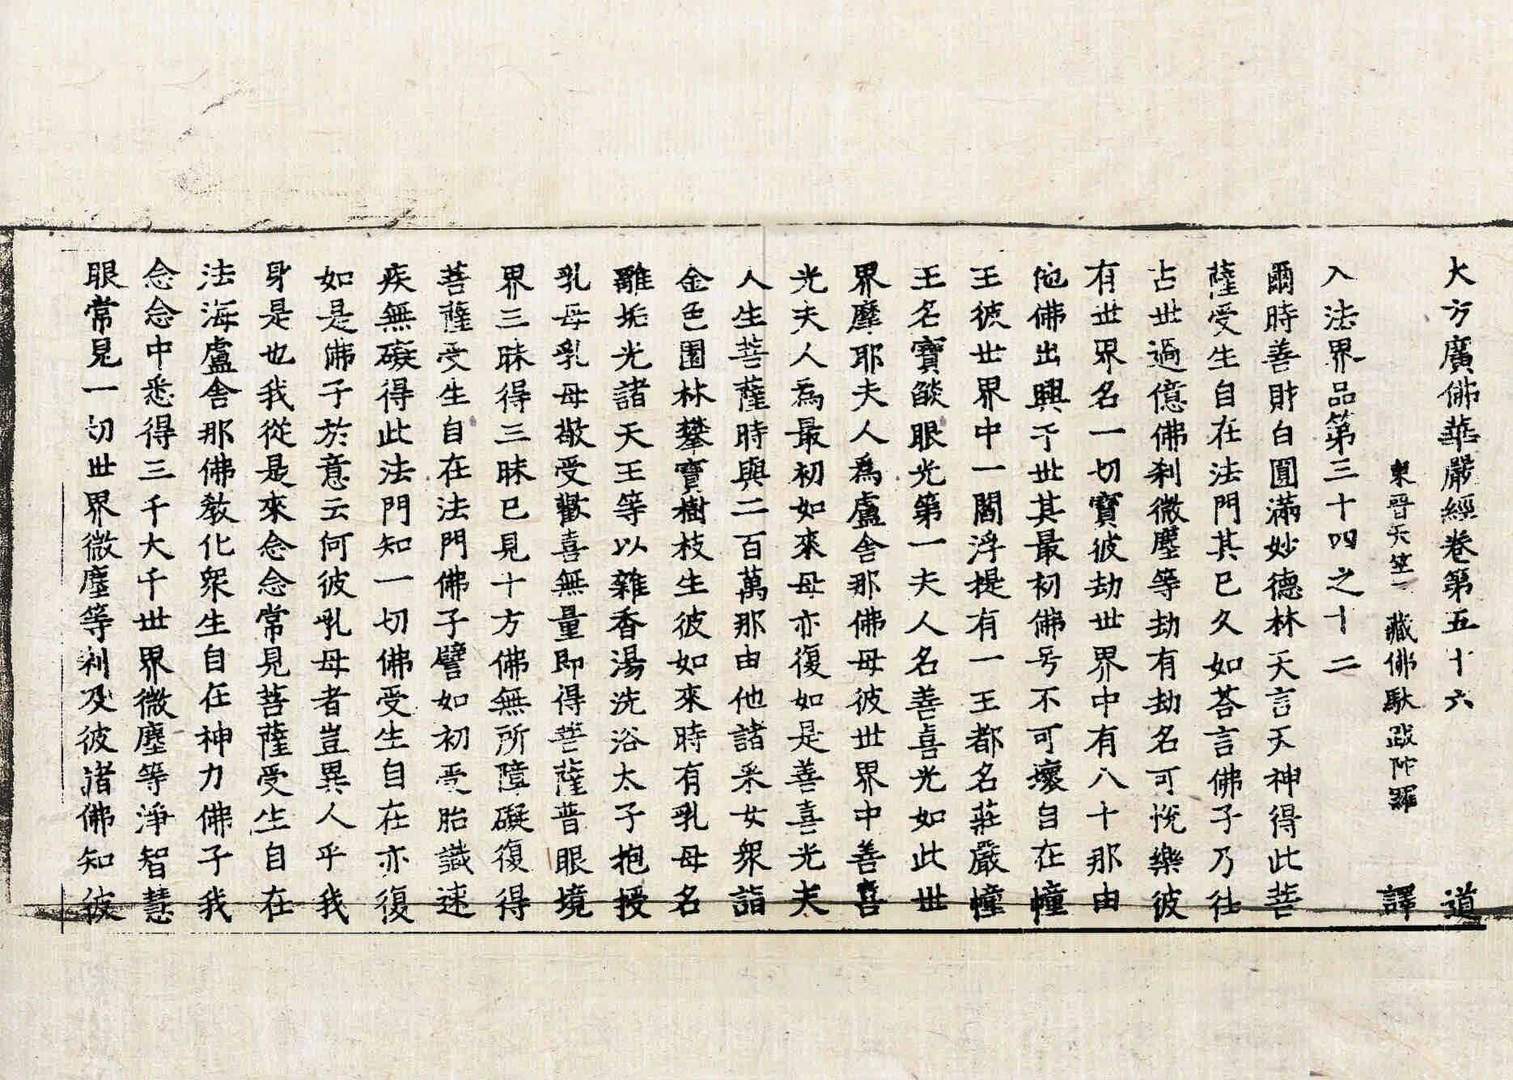 大方廣佛華嚴經卷第五十六 道
東晉天竺三藏佛馱跋陀羅 譯
入法界品第三十四之十三
爾時善財白圓滿妙德林天言天神得此菩
薩受生自在法門其已久如荅言佛子乃往
古世過億佛剎微塵等劫有劫名可悅樂彼
有世界名一切寶彼劫世界中有八十那由
他佛出興于世其最初佛号不可壞自在幢
王彼世界中一閻浮提有一王都名莊嚴幢
王名寶𦦨眼光第一夫人名善喜光如此世
界摩耶夫人為盧舍那佛母彼世界中善喜
光夫人為最初如來母亦復如是善喜光夫
人生菩薩時與二百萬那由他諸采女衆詣
金色園林攀寶樹枝生彼如來時有乳母名
離垢光諸天王等以雜香湯洗浴太子抱授
乳母乳母敬受歡喜無量即得菩薩普眼境
界三昧得三昧已見十方佛無所障礙復得
菩薩受生自在法門佛子譬如初受胎識速
疾無礙得此法門知一切佛受生自在亦復
如是佛子於意云何彼乳母者豈異人乎我
身是也我從是來念念常見菩薩受生自在
法海盧舍那佛教化衆生自在神力佛子我
念念中悉得三千大千世界微塵等淨智慧
眼常見一切世界微塵等剎及彼諸佛知彼